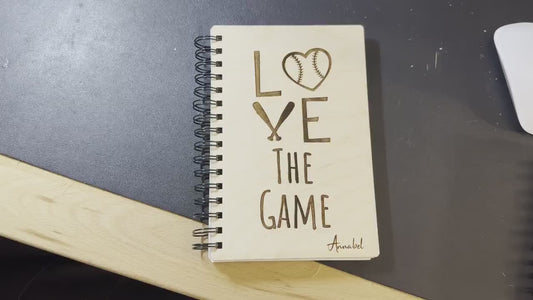 LO
VE
THE
GAME
Annabel